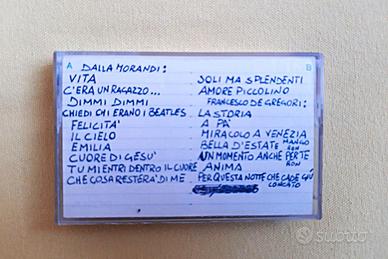 A DALLA MORANDI:
VITA
C'ERA UN RAGAZZO...
DIMMI DIMMI
CHIEDI CHI ERANO I BEATLES
FELICITA'
IL CIELO
EMILIA
CUORE DI GESU'
TU MI ENTRI DENTRO IL CUORE
CHE COSA RESTERÀ DI ME
B
SOLI MA SPLENDENTI
AMORE PICCOLINO
FRANCESCO DE GREGORI:
LA STORIA
A PÀ
MIRACOLO A VENEZIA
BELLA D'ESTATE MANGO
UN MOMENTO ANCHE PER TE RON
ANIMA RON
PER QUESTA NOTTE CHE CADE GIÙ
CONCATO
subito